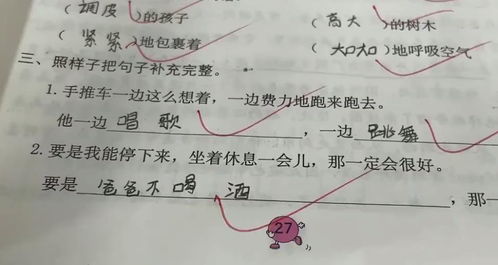 （ 调皮 ）的孩子 （ 高大 ）的树木
（ 紧紧 ）地包裹着 （ 大口大口 ）地呼吸空气
三、照样子把句子补充完整。
1. 手推车一边这么想着，一边费力地跑来跑去。
他一边 唱歌 ，一边 跳舞
2. 要是我能停下来，坐着休息一会儿，那一定会很好。
要是 爸爸不喝酒 ，那一
27